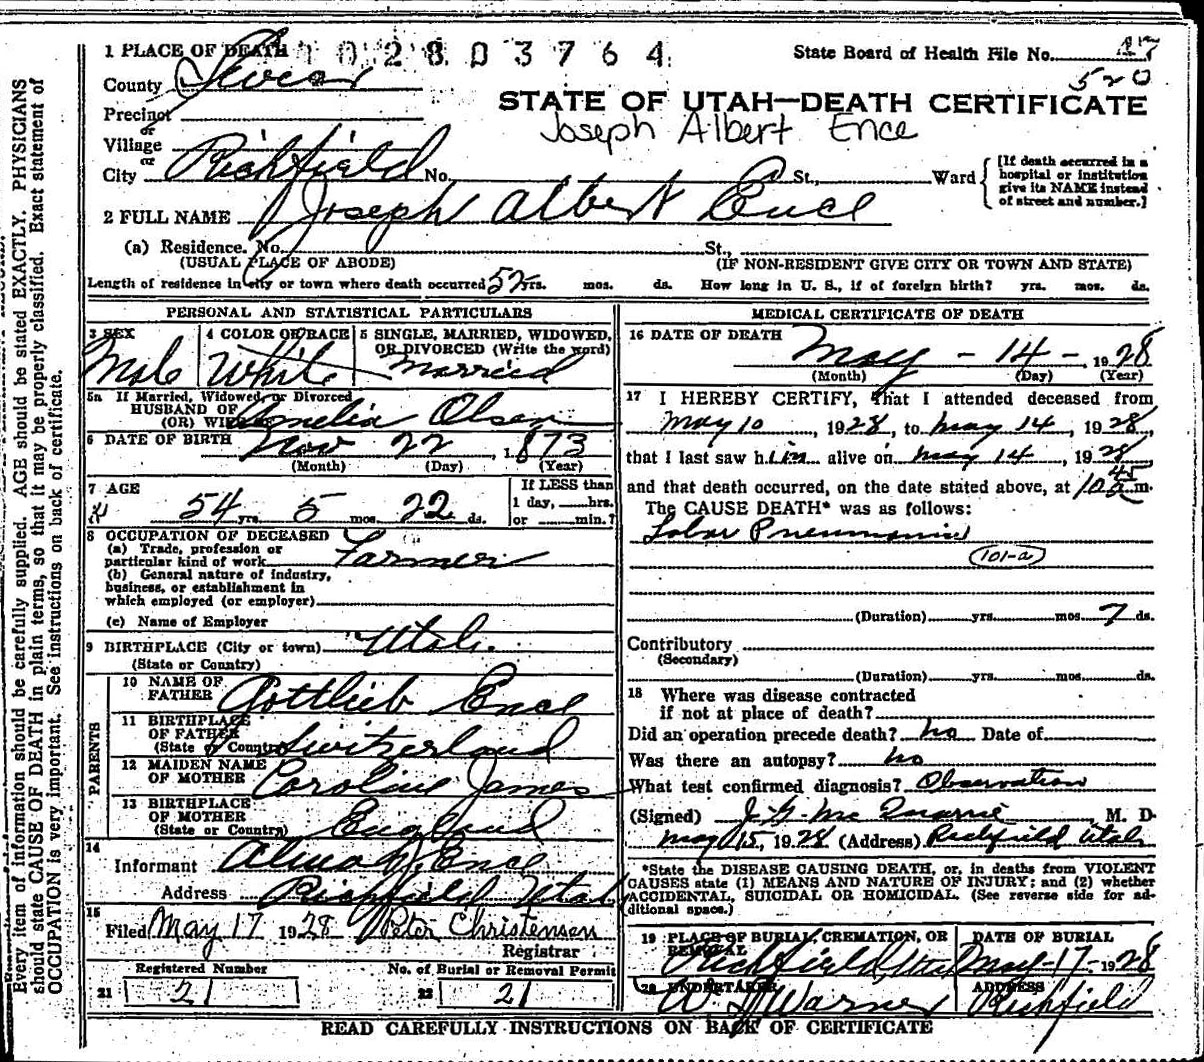 1 PLACE OF DEATH 1 0 2 8 0 3 7 6 4
State Board of Health File No. 47
520
County Sevier
STATE OF UTAH—DEATH CERTIFICATE
Joseph Albert Ence
Precinct
or
Village
or
City Richfield No. St., Ward
[If death occurred in a hospital or institution give its NAME instead of street and number.]
2 FULL NAME Joseph Albert Ence
(a) Residence. No. St.,
(USUAL PLACE OF ABODE) (IF NON-RESIDENT GIVE CITY OR TOWN AND STATE)
Length of residence in city or town where death occurred 52 yrs. mos. ds. How long in U. S., if of foreign birth? yrs. mos. ds.
PERSONAL AND STATISTICAL PARTICULARS
3 SEX
Male
4 COLOR OR RACE
White
5 SINGLE, MARRIED, WIDOWED,
OR DIVORCED (Write the word)
Married
5a If Married, Widowed, or Divorced
HUSBAND OF
(OR) WIFE Amelia Olsen
6 DATE OF BIRTH Nov 22, 1873
(Month) (Day) (Year)
7 AGE
54 yrs. 5 mos. 22 ds.
If LESS than
1 day, hrs.
or min.?
8 OCCUPATION OF DECEASED
(a) Trade, profession or
particular kind of work Farmer
(b) General nature of industry,
business, or establishment in
which employed (or employer)
(c) Name of Employer
9 BIRTHPLACE (City or town) Utah.
(State or Country)
PARENTS
10 NAME OF
FATHER Gottlieb Ence
11 BIRTHPLACE
OF FATHER
(State or Country) Switzerland
12 MAIDEN NAME
OF MOTHER Caroline James
13 BIRTHPLACE
OF MOTHER
(State or Country) England
14
Informant Alma Ence
Address Richfield Utah
15
Filed May 17 1928 Peter Christensen
Registrar
Registered Number
21 21
No. of Burial or Removal Permit
22 21
MEDICAL CERTIFICATE OF DEATH
16 DATE OF DEATH May - 14 - 1928
(Month) (Day) (Year)
17 I HEREBY CERTIFY, that I attended deceased from
May 10, 1928, to May 14, 1928,
that I last saw him alive on May 14, 1928
and that death occurred, on the date stated above, at 10 45 a m.
The CAUSE DEATH* was as follows:
Lobar Pneumonia
(101-a)
(Duration) yrs. mos. 7 ds.
Contributory
(Secondary)
(Duration) yrs. mos. ds.
18 Where was disease contracted
if not at place of death?
Did an operation precede death? no Date of
Was there an autopsy? no
What test confirmed diagnosis? Observation
(Signed) J. G. McQuarrie, M. D.
May 15, 1928 (Address) Richfield Utah
*State the DISEASE CAUSING DEATH, or, in deaths from VIOLENT
CAUSES state (1) MEANS AND NATURE OF INJURY; and (2) whether
ACCIDENTAL, SUICIDAL OR HOMICIDAL. (See reverse side for ad-
ditional space.)
19 PLACE OF BURIAL, CREMATION, OR
REMOVAL
Richfield, Utah
DATE OF BURIAL
May-17-1928
20 UNDERTAKER
Warner
ADDRESS
Richfield
READ CAREFULLY INSTRUCTIONS ON BACK OF CERTIFICATE
Every item of information should be carefully supplied. AGE should be stated EXACTLY. PHYSICIANS
should state CAUSE OF DEATH in plain terms, so that it may be properly classified. Exact statement of
OCCUPATION is very important. See instructions on back of certificate.